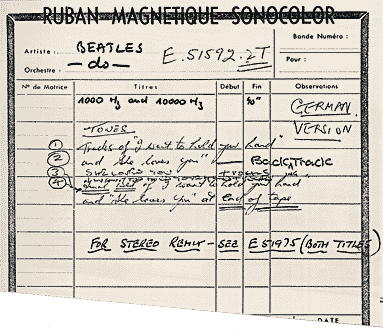 RUBAN MAGNETIQUE SONOCOLOR
Artiste : BEATLES
Bande Numéro :
— do — E.51592.2T
Pour :
Orchestre :
N° de Matrice Titres Début Fin Observations
1000 Hz and 10000 Hz GERMAN
TONES VERSION
① Tracks of "I want to hold your hand"
② and "She loves you" — BACKING TRACK
③ SHE LOVES YOU
④ of "I want to hold your hand"
and "She loves you" at end of tape
FOR STEREO REMIX — SEE E51975 (BOTH TITLES)
DATE